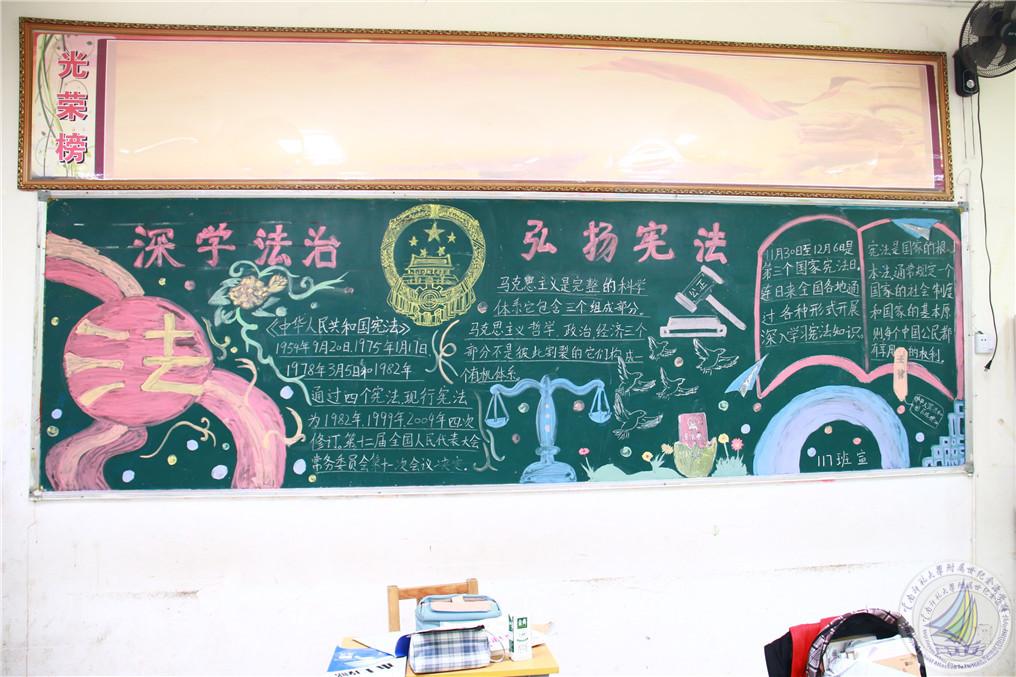 光荣榜
深学法治
弘扬宪法
法
《中华人民共和国宪法》
1954年9月20日.1975年1月17日
1978年3月5日和1982年
通过四个宪法,现行宪法
为1982年,1999年,2004年四次
修订,第十二届全国人民代表大会
常务委员会第十一次会议决定.
马克思主义是完整的科学
体系它包含三个组成部分.
马克思主义哲学 政治经济三个
部分不是彼此割裂的它们构成一
个有机体系.
公正
11月30日至12月6日是
第三个国家宪法日.
连日来全国各地通
过各种形式开展
深入学习宪法知识.
宪法是国家的根
本法,通常规定一个
国家的社会制度
和国家的基本原
则每个中国公民都
的权利.
117班宣